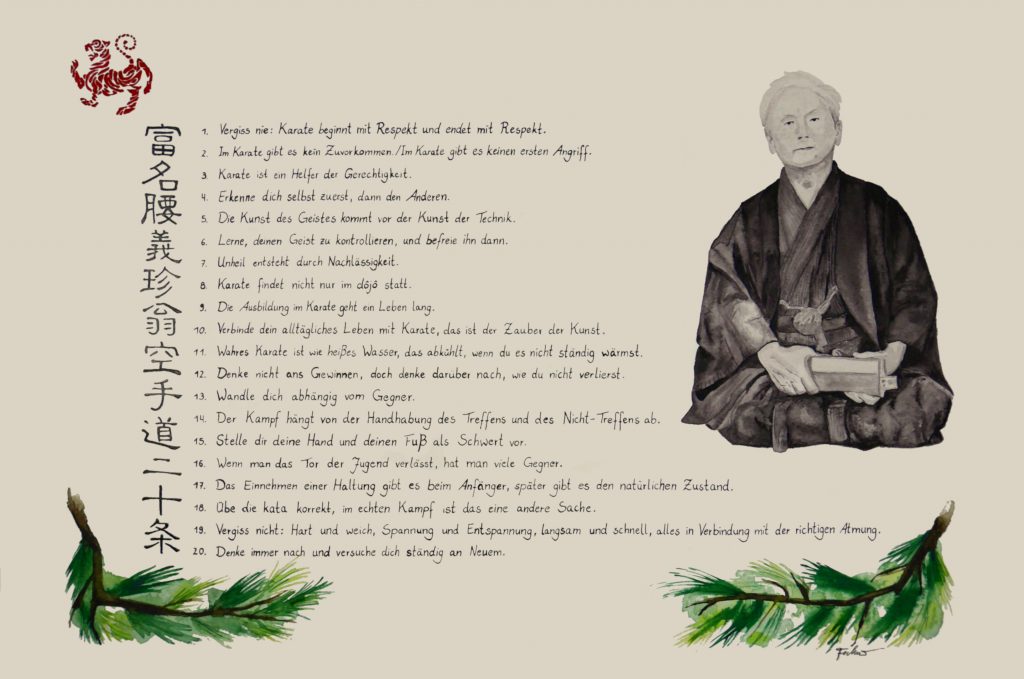 富名腰義珍翁空手道二十条
1. Vergiss nie: Karate beginnt mit Respekt und endet mit Respekt.
2. Im Karate gibt es kein Zuvorkommen./Im Karate gibt es keinen ersten Angriff.
3. Karate ist ein Helfer der Gerechtigkeit.
4. Erkenne dich selbst zuerst, dann den Anderen.
5. Die Kunst des Geistes kommt vor der Kunst der Technik.
6. Lerne, deinen Geist zu kontrollieren, und befreie ihn dann.
7. Unheil entsteht durch Nachlässigkeit.
8. Karate findet nicht nur im dōjō statt.
9. Die Ausbildung im Karate geht ein Leben lang.
10. Verbinde dein alltägliches Leben mit Karate, das ist der Zauber der Kunst.
11. Wahres Karate ist wie heißes Wasser, das abkühlt, wenn du es nicht ständig wärmst.
12. Denke nicht ans Gewinnen, doch denke darüber nach, wie du nicht verlierst.
13. Wandle dich abhängig vom Gegner.
14. Der Kampf hängt von der Handhabung des Treffens und des Nicht-Treffens ab.
15. Stelle dir deine Hand und deinen Fuß als Schwert vor.
16. Wenn man das Tor der Jugend verlässt, hat man viele Gegner.
17. Das Einnehmen einer Haltung gibt es beim Anfänger, später gibt es den natürlichen Zustand.
18. Übe die kata korrekt, im echten Kampf ist das eine andere Sache.
19. Vergiss nicht: Hart und weich, Spannung und Entspannung, langsam und schnell, alles in Verbindung mit der richtigen Atmung.
20. Denke immer nach und versuche dich ständig an Neuem.